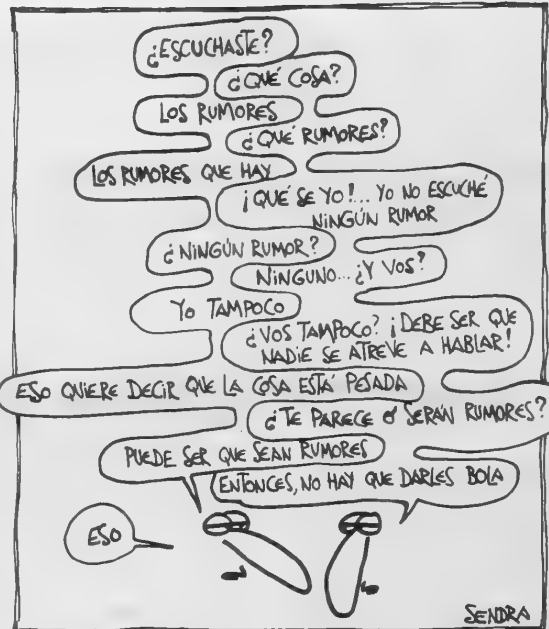 ¿ESCUCHASTE?
¿QUÉ COSA?
LOS RUMORES
¿QUÉ RUMORES?
LOS RUMORES QUE HAY
¡QUÉ SE YO!... YO NO ESCUCHÉ
NINGÚN RUMOR
¿NINGÚN RUMOR?
NINGUNO... ¿Y VOS?
YO TAMPOCO
¿VOS TAMPOCO? ¡DEBE SER QUE
NADIE SE ATREVE A HABLAR!
ESO QUIERE DECIR QUE LA COSA ESTÁ PESADA
¿TE PARECE O SERÁN RUMORES?
PUEDE SER QUE SEAN RUMORES
ENTONCES, NO HAY QUE DARLES BOLA
ESO
SENDRA